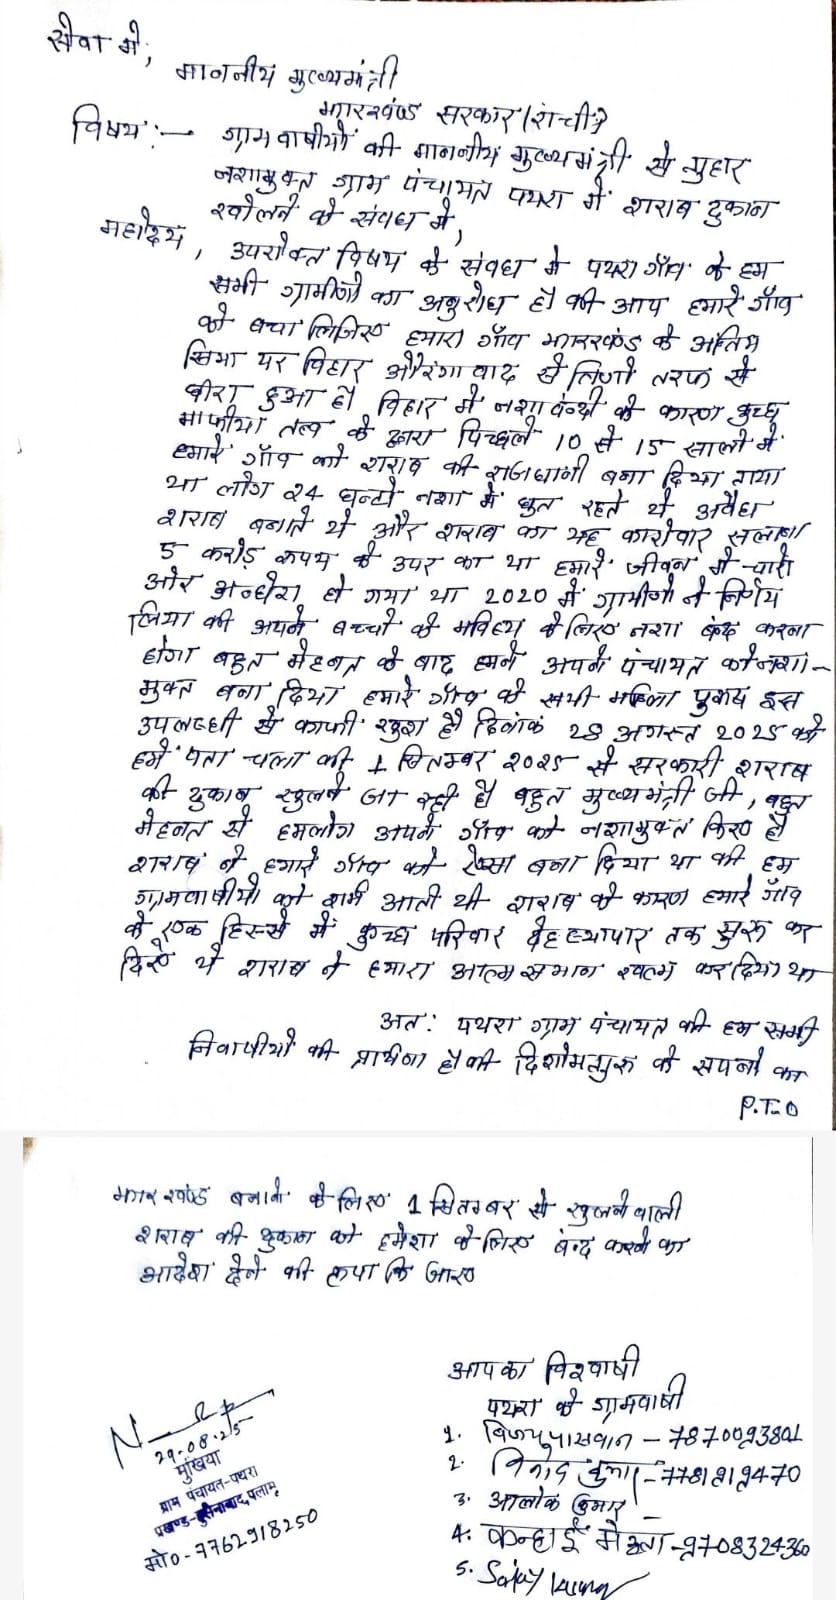 सेवा में,
माननीय मुख्यमंत्री
झारखण्ड सरकार/रांची?
विषय:— ग्रामवाषीयों की माननीय मुख्यमंत्री से गुहार
नशामुक्त ग्राम पंचायत पथरा में शराब दुकान
खोलने के संवध में,
महोदय, उपरोक्त विषय के संवध में पथरा गाँव के हम
सभी ग्रामीणो का अनुरोध है की आप हमारे गाँव
को बचा लिजिए हमारा गाँव झारखंड के अंतिम
सिमा पर विहार औरंगावाद से तिनो तरफ से
घीरा हुआ है। विहार में नशावन्दी के कारण कुच्छ
माफीया तत्व के द्वारा पिच्छले 10 से 15 सालो में
हमारे गाँव को शराब की राजधानी बना दिया गया
था लोग 24 घन्टो नशा में धुत रहते थे अवैध
शराब बनाते थे और शराब का यह कारोवार सलाना
5 करोड़ रूपय के उपर का था हमारे जीवन में चारो
ओर अन्धेरा हो गया था 2020 में ग्रामीणो ने निर्णय
लिया की अपने बच्चो के भविष्य के लिए नशा बंद करना
होगा बहुत मेहनत के बाद हमने अपने पंचायत को नशा-
मुक्त बना दिया हमारे गाँव के सभी महिला पुरूष इस
उपलब्धी से काफी खुश है दिनांक 28 अगस्त 2025 को
हमे पता चला की 1 सितम्बर 2025 से सरकारी शराब
की दुकान खुलने जा रही है बहुत मुख्यमंत्री जी, बहुत
मेहनत से हमलोग अपने गाँव को नशामुक्त किए है
शराब ने हमारे गाँव को ऐसा बना दिया था की हम
ग्रामवाषीयो को शर्म आती थी शराब के कारण हमारे गाँव
के एक हिस्से में कुच्छ परिवार देहव्यापार तक शुरू कर
दिए थे शराब ने हमारा आत्मसमान खत्म कर दिया था
अत: पथरा ग्राम पंचायत की हम सभी
निवाषीयों की प्रार्थना है की दिशोमगुरू के सपनो का
P.T.O
झारखंण्ड बनाने के लिए 1 सितम्बर से खुलने वाली
शराब की दुकान को हमेशा के लिए बंन्द करने का
आदेश देने की कृपा कि जाए
आपका विश्वाषी
पथरा के ग्रामवाषी
1. विजय पासवान – 7870093801
2. विनोद कुमार –
3. आलोक कुमार
4. कन्हाई मेहता – 9708324360
5. Sanjay Kumar
29-08-25
मुखिया
ग्राम पंचायत-पथरा
प्रखण्ड-हुसैनाबाद, पलामू
मो०-7762918250